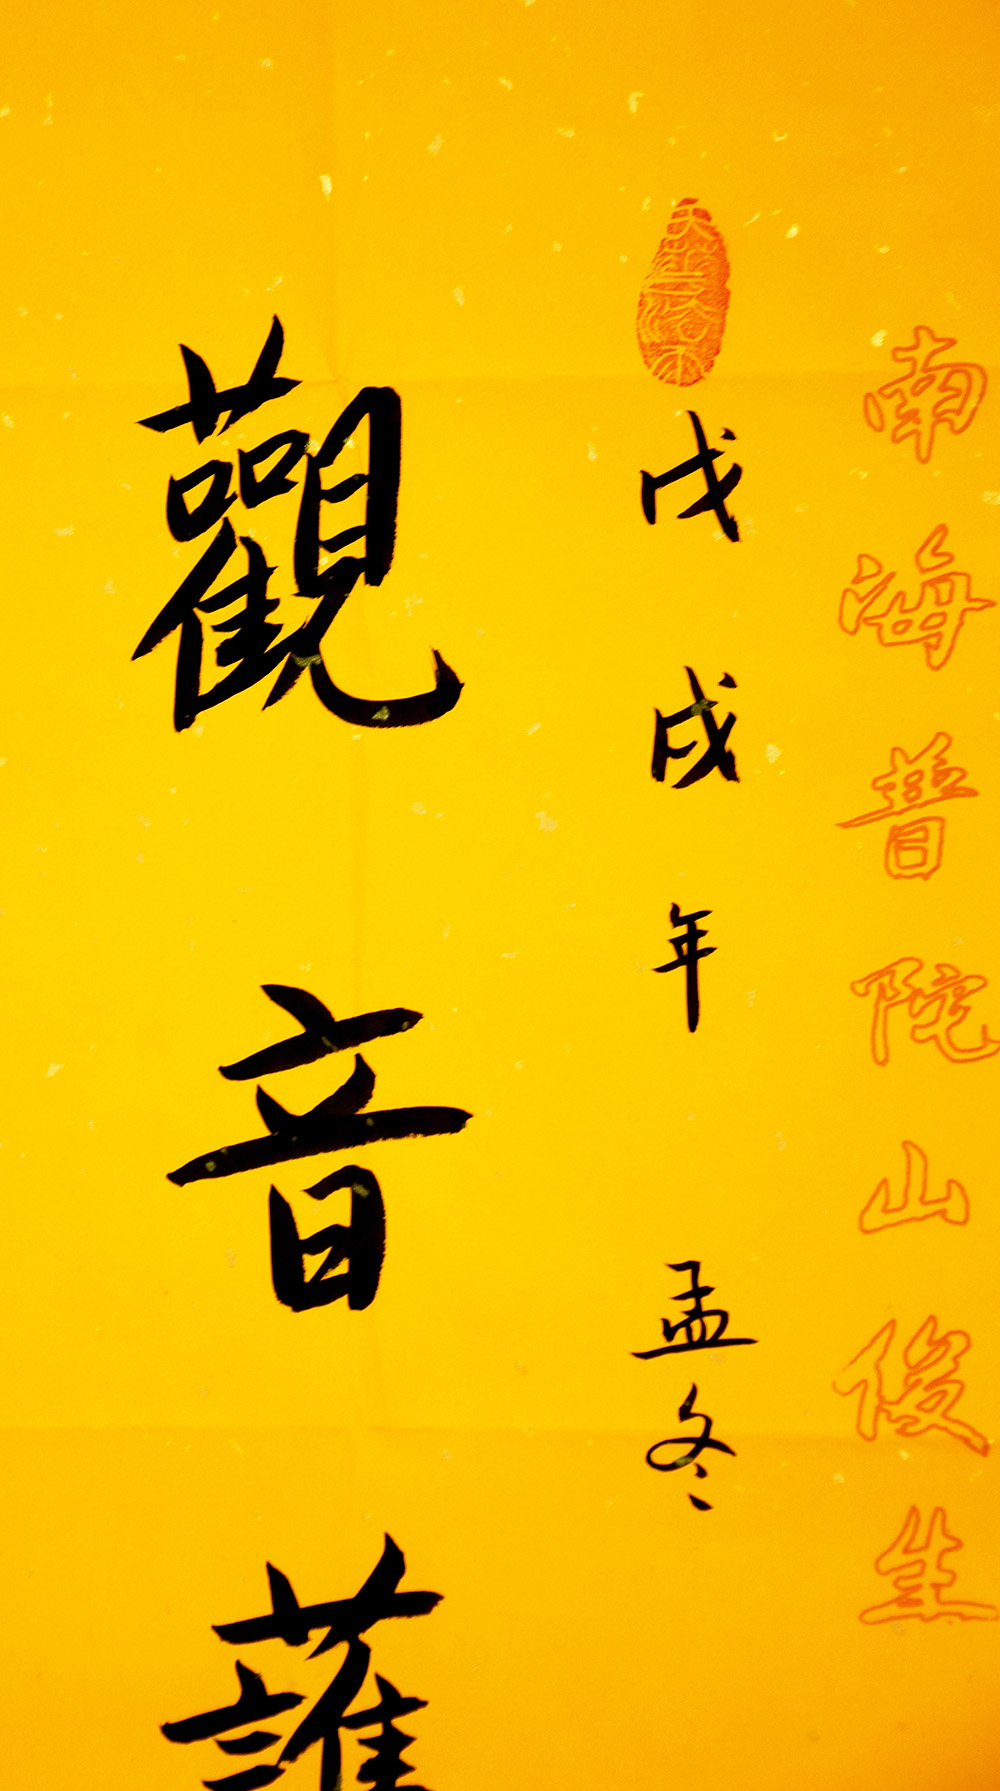 南海普陀山俊生
戊戌年 孟冬
觀音護